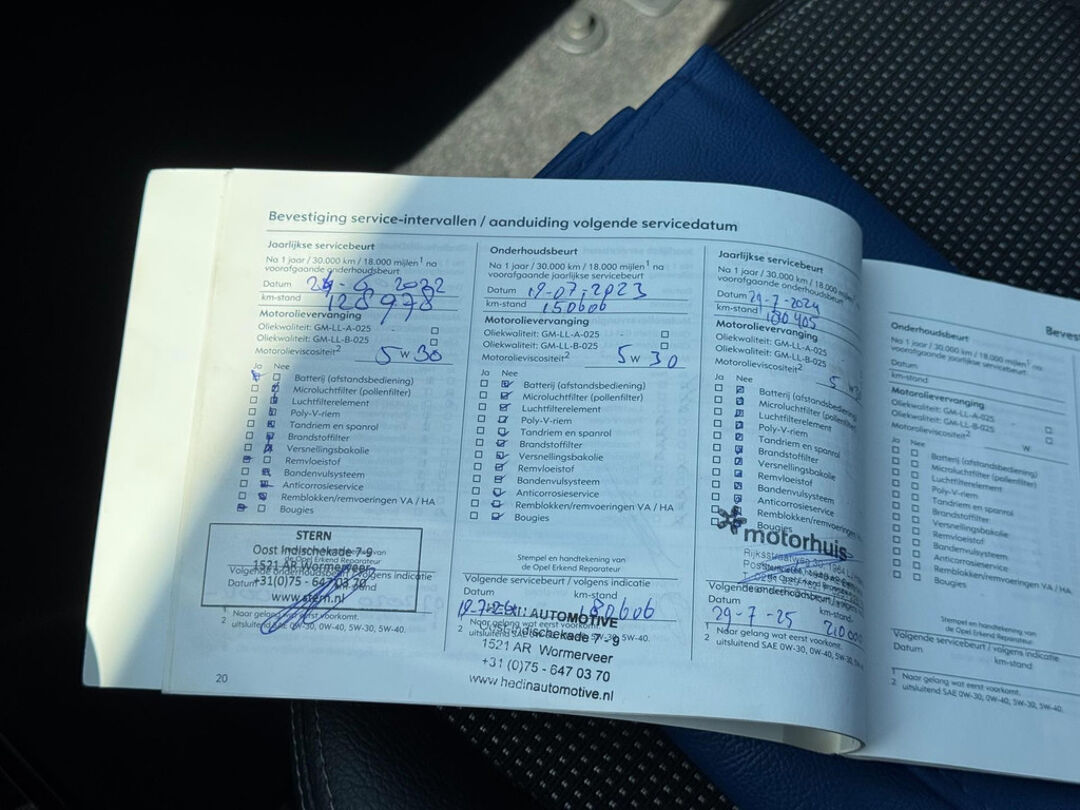 Bevestiging service-intervallen / aanduiding volgende servicedatum
Jaarlijkse servicebeurt
Na 1 jaar / 30.000 km / 18.000 mijlen1 na
voorafgaande onderhoudsbeurt
Datum 2022
km-stand 128978
Motorolievervanging
Oliekwaliteit: GM-LL-A-025
Oliekwaliteit: GM-LL-B-025
Motorolieviscositeit2 5 W 30
Ja Nee
Batterij (afstandsbediening)
Microluchtfilter (pollenfilter)
Luchtfilterelement
Poly-V-riem
Tandriem en spanrol
Brandstoffilter
Versnellingsbakolie
Remvloeistof
Bandenvulsysteem
Anticorrosieservice
Remblokken/remvoeringen VA / HA
Bougies
STERN
Oost Indischekade 7-9
1521 AR Wormerveer
+31(0)75 - 647 03 70
www.stern.nl
de Opel Erkend Reparateur
Volgende
volgens indicatie
Datum
1 Naar gelang wat eerst voorkomt.
2 uitsluitend SAE 0W-30, 0W-40, 5W-30, 5W-40.
20
Onderhoudsbeurt
Na 1 jaar / 30.000 km / 18.000 mijlen1 na
voorafgaande jaarlijkse servicebeurt
Datum 19-07-2023
km-stand 150606
Motorolievervanging
Oliekwaliteit: GM-LL-A-025
Oliekwaliteit: GM-LL-B-025
Motorolieviscositeit2 5 W 30
Ja Nee
Batterij (afstandsbediening)
Microluchtfilter (pollenfilter)
Luchtfilterelement
Poly-V-riem
Tandriem en spanrol
Brandstoffilter
Versnellingsbakolie
Remvloeistof
Bandenvulsysteem
Anticorrosieservice
Remblokken/remvoeringen VA / HA
Bougies
Stempel en handtekening van
de Opel Erkend Reparateur
Volgende servicebeurt / volgens indicatie
Datum km-stand
180606
AUTOMOTIVE
Oost Indischekade 7 - 9
1521 AR Wormerveer
+31 (0)75 - 647 03 70
www.hedinautomotive.nl
1 Naar gelang wat eerst voorkomt.
2 uitsluitend SAE 5W-30, 5W-40.
Jaarlijkse servicebeurt
Na 1 jaar / 30.000 km / 18.000 mijlen1 na
voorafgaande onderhoudsbeurt
Datum 29-7-2024
km-stand 180405
Motorolievervanging
Oliekwaliteit: GM-LL-A-025
Oliekwaliteit: GM-LL-B-025
Motorolieviscositeit2 5
Ja Nee
Batterij (afstandsbediening)
Microluchtfilter (pollenfilter)
Luchtfilterelement
Poly-V-riem
Tandriem en spanrol
Brandstoffilter
Versnellingsbakolie
Remvloeistof
Bandenvulsysteem
Anticorrosieservice
Remblokken/remvoeringen
Bougies
motorhuis
Rijksstraatweg 1964
de Opel Erkend
Volgende onderhoudsbeurt / volgens
Datum km-stand
29-7-25 210
1 Naar gelang wat eerst voorkomt.
2 uitsluitend SAE 0W-30, 0W-40, 5W-30,
Onderhoudsbeurt
Na 1 jaar / 30.000 km / 18.000 mijlen1 na
voorafgaande jaarlijkse servicebeurt
Datum
km-stand
Motorolievervanging
Oliekwaliteit: GM-LL-A-025
Oliekwaliteit: GM-LL-B-025
Motorolieviscositeit2 W
Ja Nee
Batterij (afstandsbediening)
Microluchtfilter (pollenfilter)
Luchtfilterelement
Poly-V-riem
Tandriem en spanrol
Brandstoffilter
Versnellingsbakolie
Remvloeistof
Bandenvulsysteem
Anticorrosieservice
Remblokken/remvoeringen VA / HA
Bougies
Stempel en handtekening van
de Opel Erkend Reparateur
Volgende servicebeurt / volgens indicatie
Datum km-stand
1 Naar gelang wat eerst voorkomt.
2 uitsluitend SAE 0W-30, 0W-40, 5W-30, 5W-40.